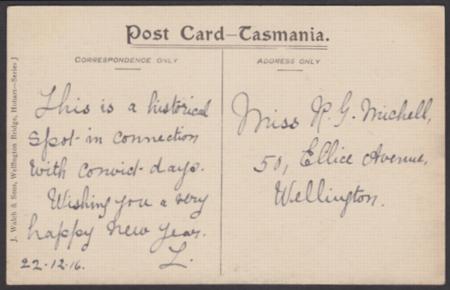 Post Card—Tasmania.
CORRESPONDENCE ONLY
This is a historical
spot in connection
with convict days.
Wishing you a very
happy new year.
22-12-16. L.
ADDRESS ONLY
Miss N. G. Michell,
50, Ellice Avenue,
Wellington.
J. Walch & Sons, Wellington Bridge, Hobart—Series J